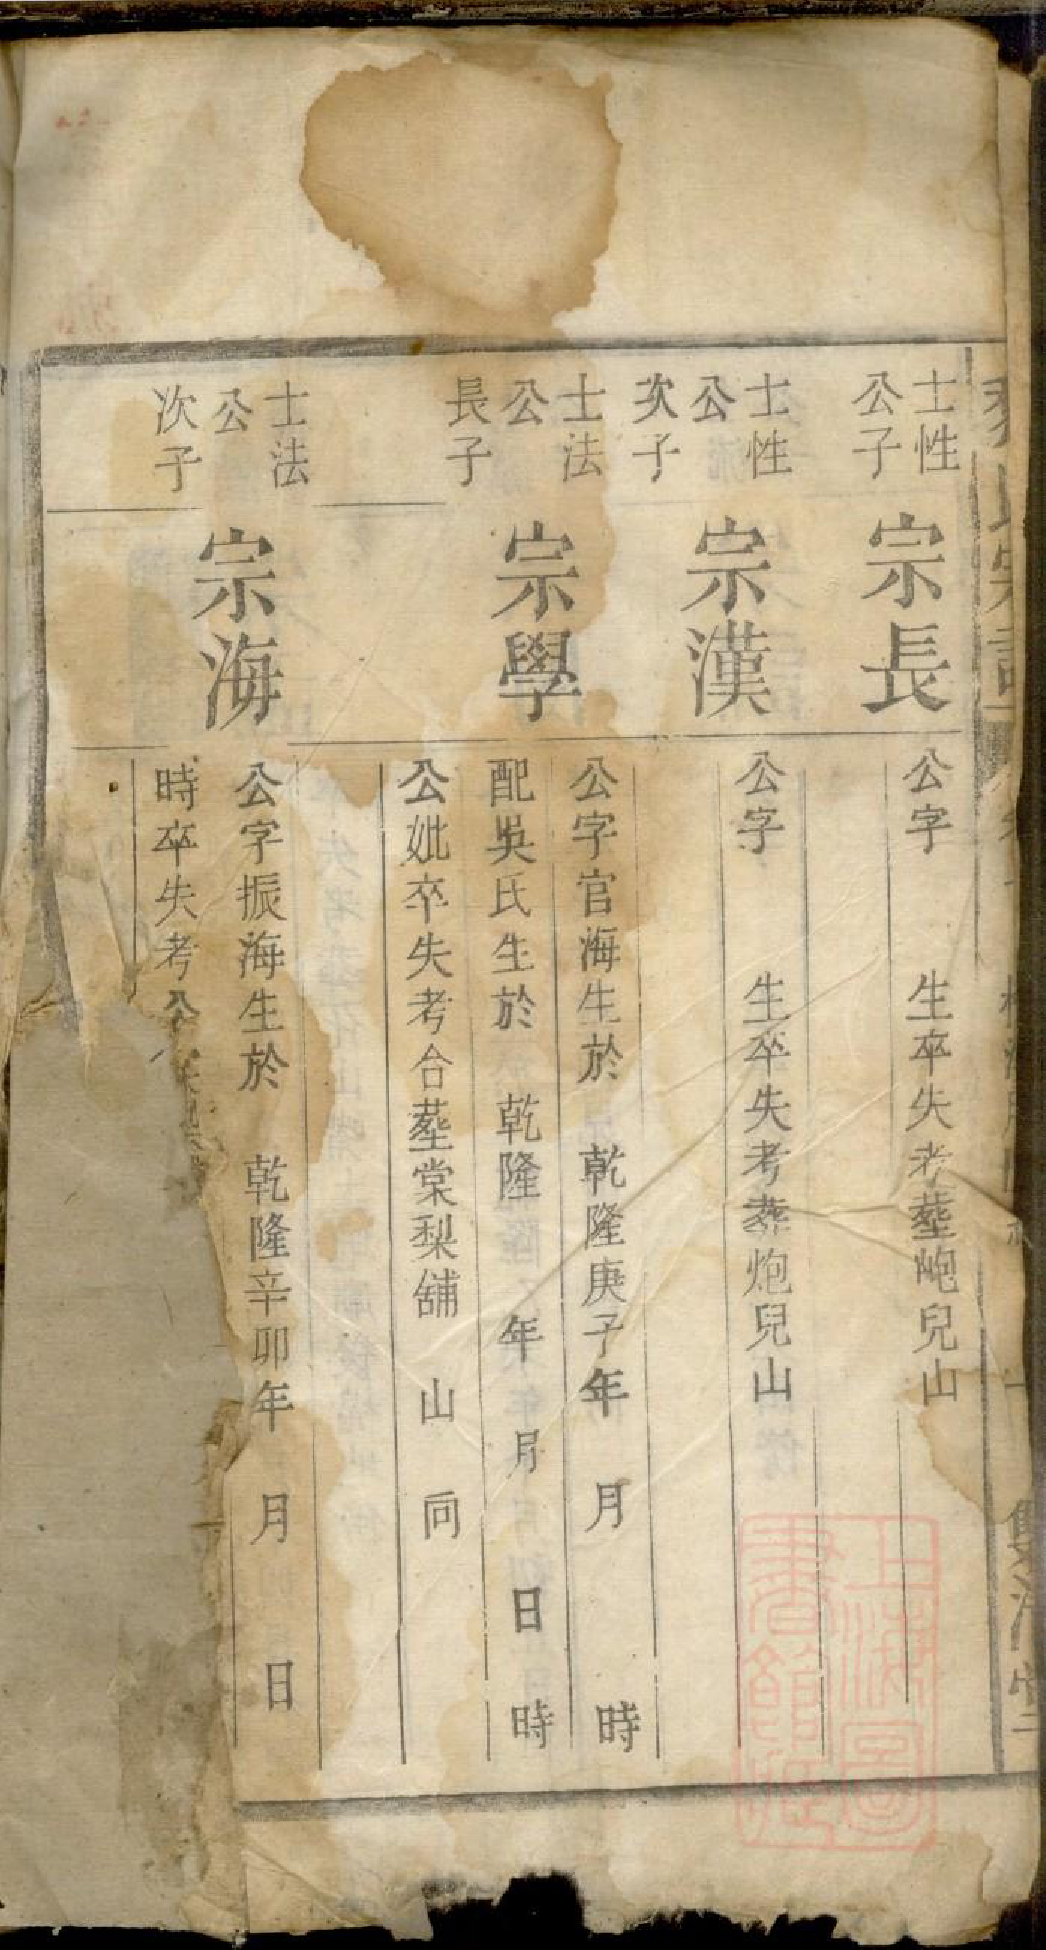 士性
公子
宗長
公字 生卒失考塟岠兒山
士性
公
次子
宗漢
公字 生卒失考葬炮兒山
士法
公
長子
宗學
公字官海生於 乾隆庚子年 月 時
配吳氏生於 乾隆 年 月 日 時
公妣卒失考合塟棠梨舖 山 向
士法
公
次子
宗海
公字振海生於 乾隆辛卯年 月 日
時卒失考公
上海圖
書館藏